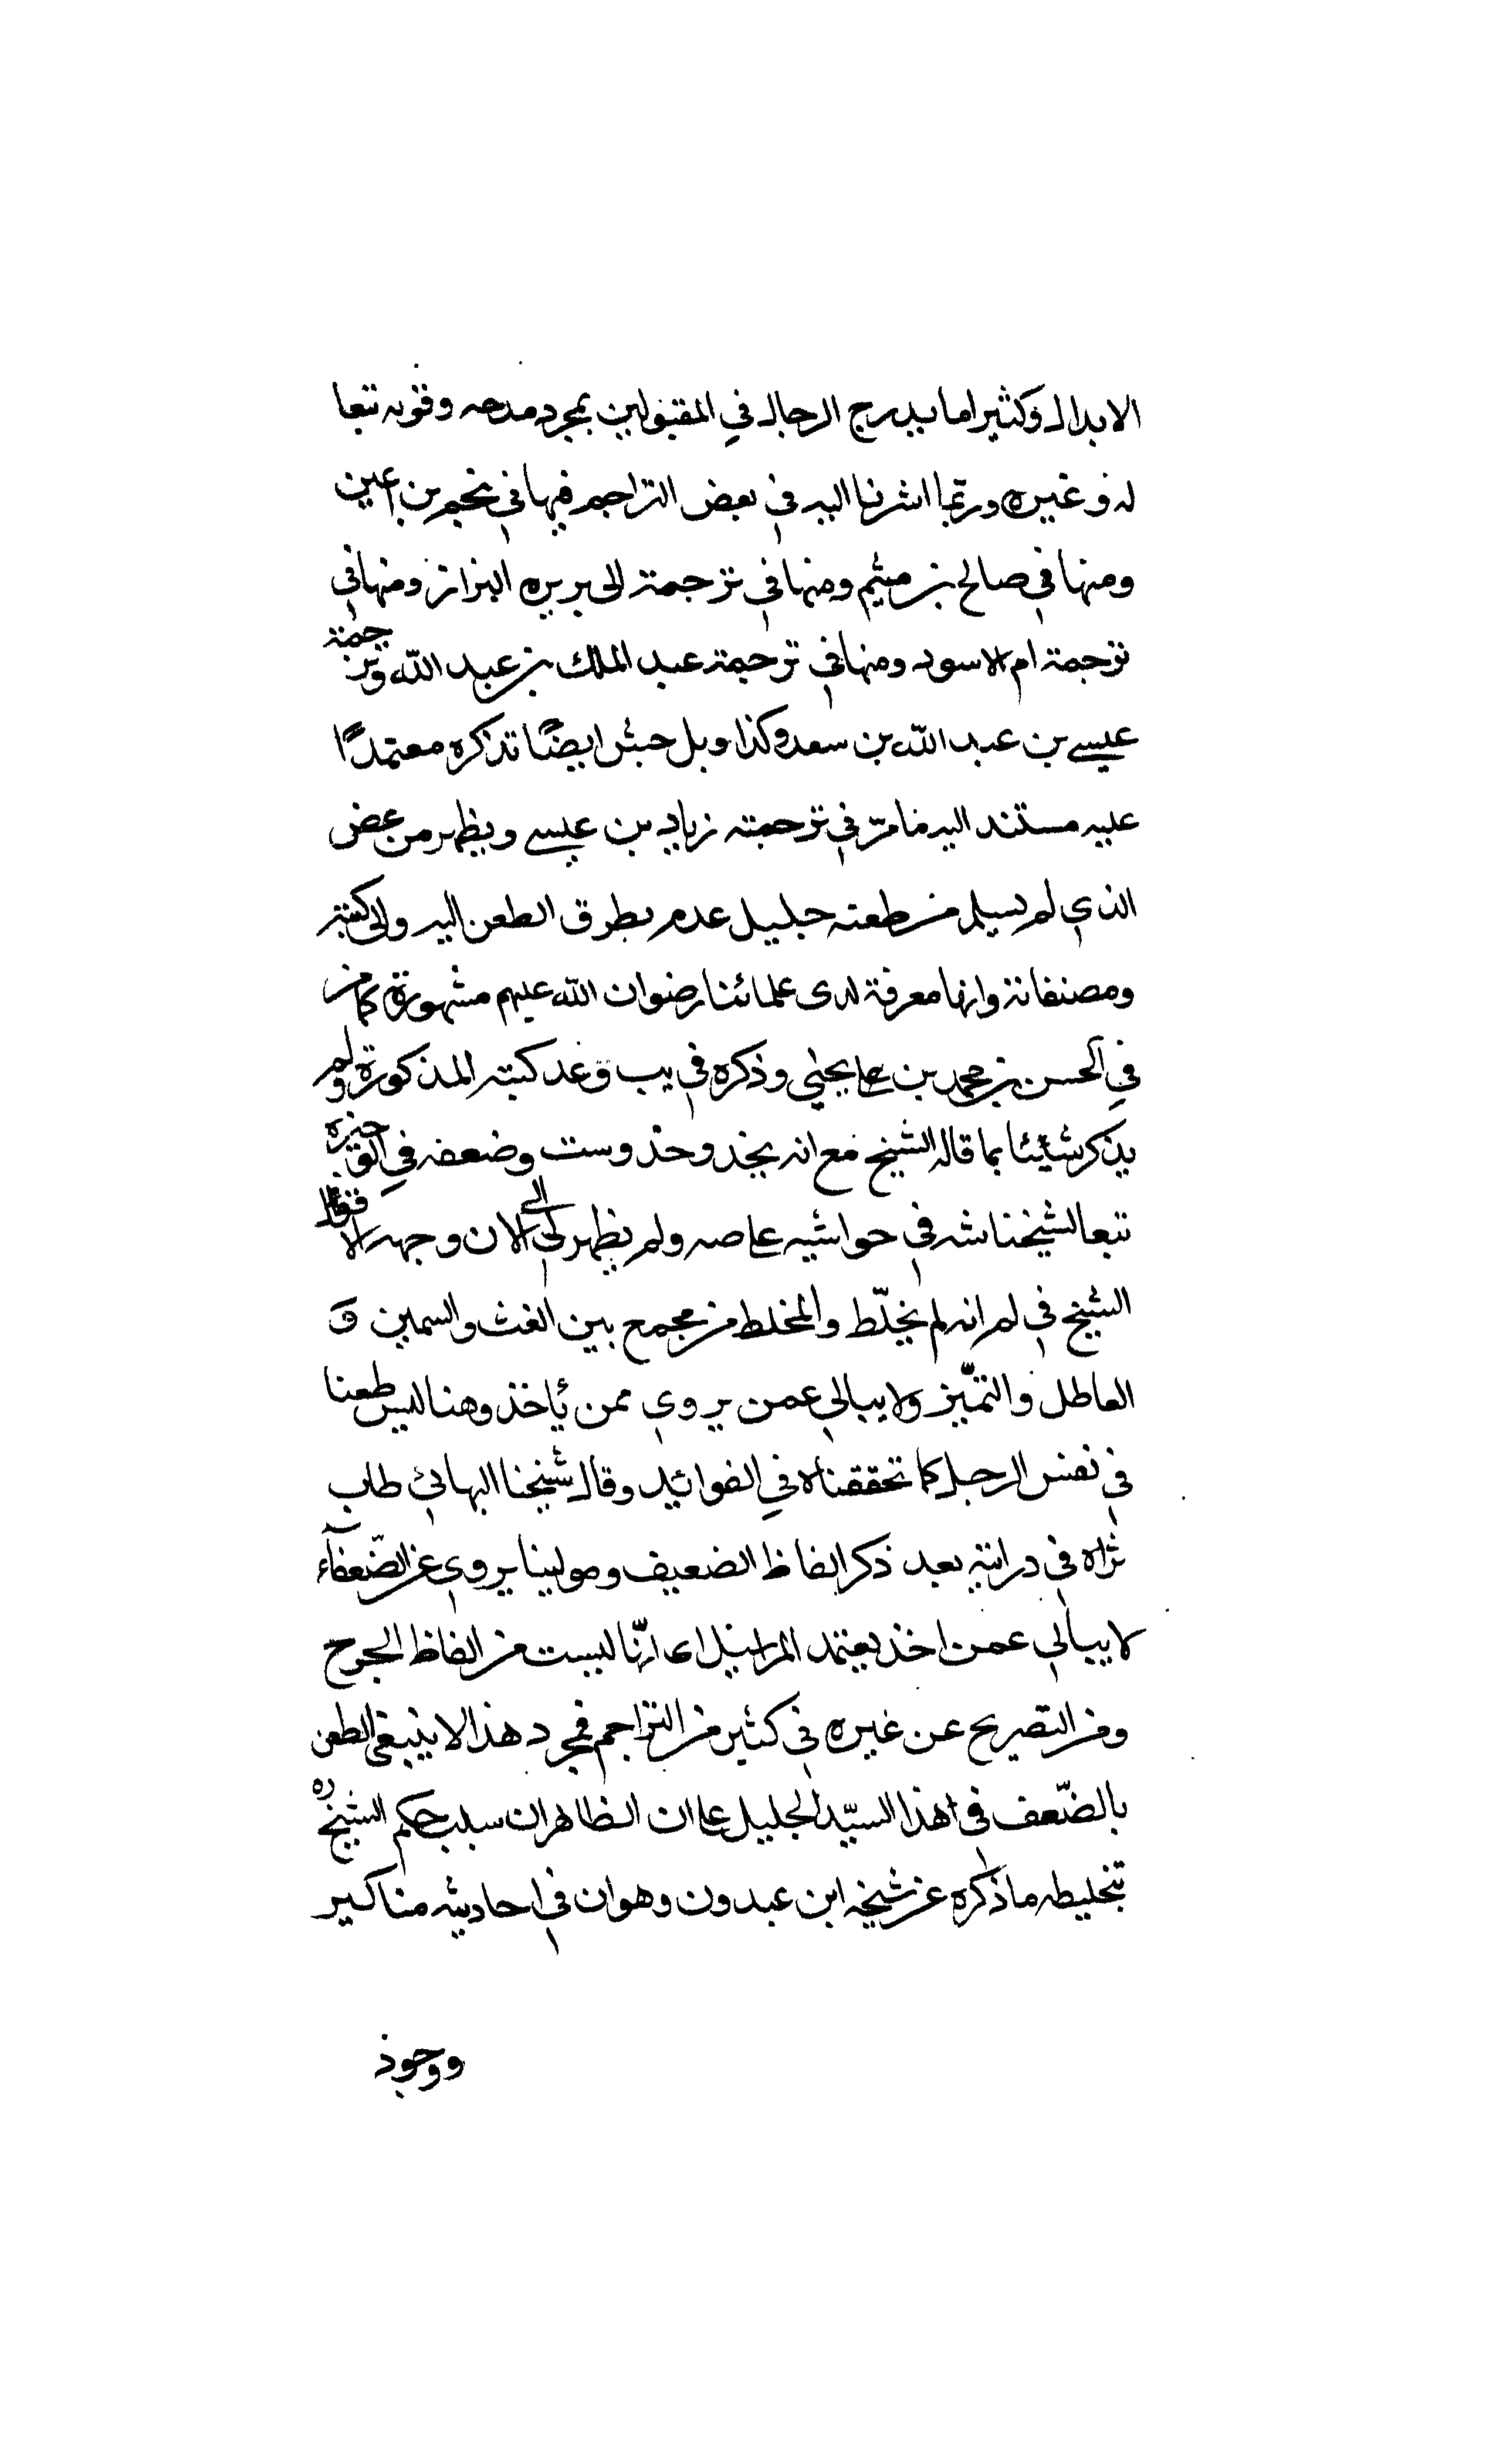 الابدال وكثيرا ما يدرج الرجال في المقبولين بمجرد مدحه وقوله تبعا
له و غيره وربما اشرنا اليه في بعض التراجم فمنها في نجم بن اعين
ومنها في صالح بن ميثم ومنها في ترجمة الى بريره البزاز ومنها في
ترجمة ام الاسود ومنها في ترجمة عبد الملك بن عبد الله وترجمة
عيسى بن عبد الله بن سعد وكذا ايضًا تذكره معتمدًا
عليه مستند اليه فامر في ترجمته زياد بن عيسى ويظهر من غض
الذي لم يسلم من طعنه جليل عدم تطرق الطعن اليه والى كتبه
ومصنفاته وانها معرفة لدى علمائنا رضوان الله عليهم مشهورة كما مر
في الحسن بن محمد بن يحيى وذكره في يب وعد كتبه المذكورة ولم
يذكر شيئا بما قاله الشيخ مع انه وضعفه في
تبعا لشيخنا شه في حواشيه عاصه ولم يظهر لى الى الان وجهه
الشيخ في لم انه لم يخلّط والمخلط من مجمع بين الغث والسمين و
العاطل والتميّز ولا يبالي عمن يروي ممن يأخذ وهنا ليس طعنا
في نفس الرجل كما تحققناه في الفوائد وقال شيخنا البهائي طاب
ثراه في درايته بعد ذكر الفاظ الضعيف يروي عن الضّعفآء
لا يبالي عمن اخذ يعتمد المراسيل انّها ليست من الفاظ الجرح
ومر التصريح عن غيره في كثير من التراجم فمجرد هذا لا ينبغي الطعن
بالضّعف في هذا السيّد الجليل عا ان الظاهر ان سبب حكم الشيخ ره
بتخليطه ما ذكره عن شيخه ابن عبدون وهو ان في احاديثه مناكير
ووجود